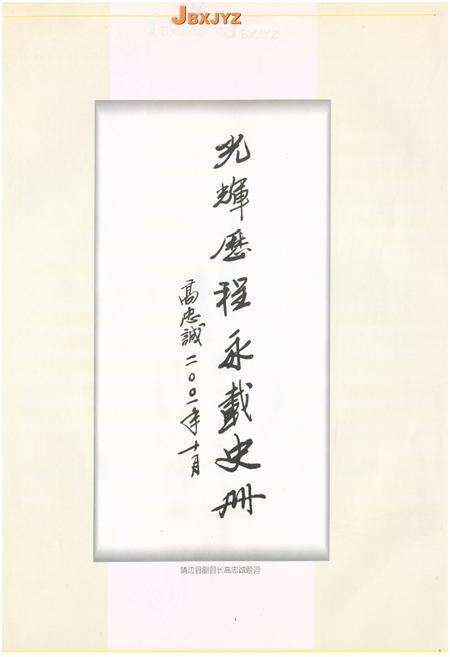 JBXJYZ
光輝歷程永載史册
高忠誠二〇〇一年十月
靖边县副县长高忠诚题词